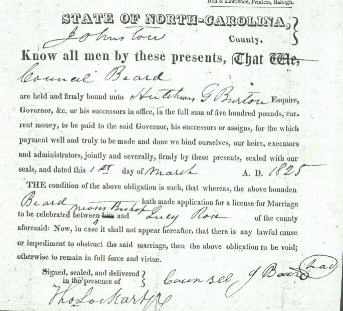 Bell & Lawrence, Printers, Raleigh.
STATE OF NORTH-CAROLINA,
Johnston County.
Know all men by these presents, That We,
Council Beard
are held and firmly bound unto Hutchins G Burton Esquire,
Governor, &c. or his successors in office, in the full sum of five hundred pounds, cur-
rent money, to be paid to the said Governor, his successors or assigns, for the which
payment well and truly to be made and done we bind ourselves, our heirs, executors
and administrators, jointly and severally, firmly by these presents, sealed with our
seals, and dated this 1st day of March A. D. 1825
THE condition of the above obligation is such, that whereas, the above bounden
Beard hath made application for a license for Marriage
to be celebrated between him and Lucy Rose of the county
aforesaid: Now, in case it shall not appear hereafter, that there is any lawful cause
or impediment to obstruct the said marriage, then the above obligation to be void;
otherwise to remain in full force and virtue.
Signed, sealed, and delivered
in the presence of